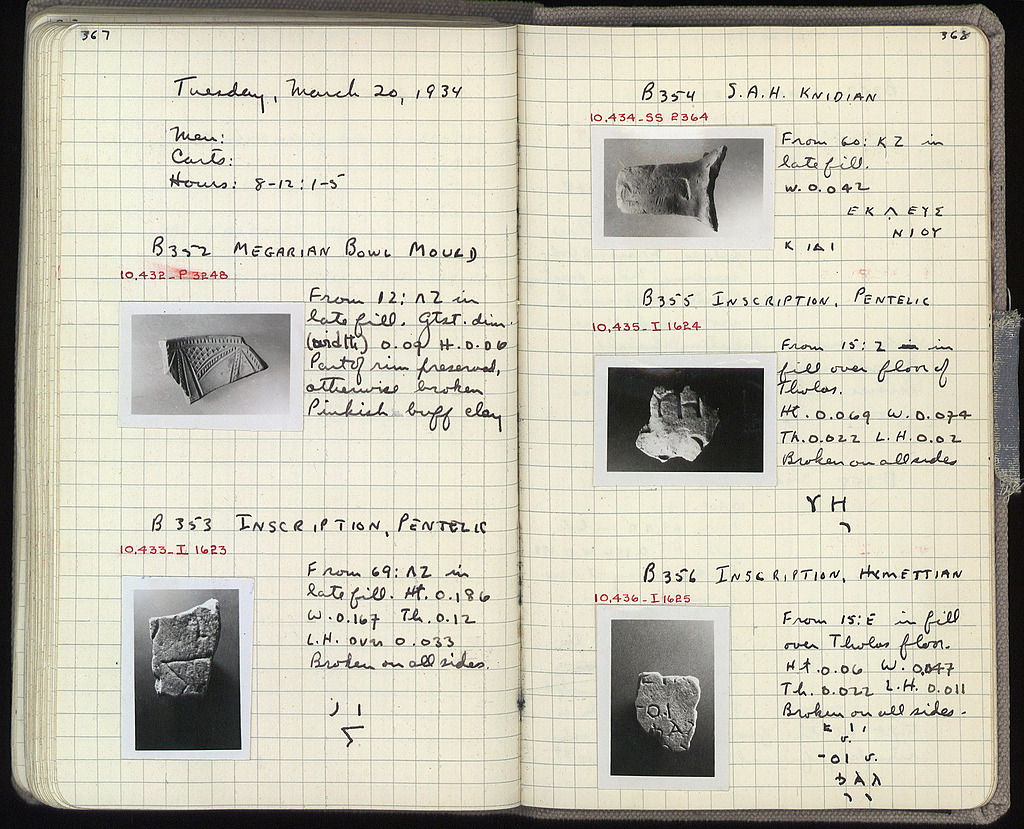 367
Tuesday, March 20, 1934
Men:
Carts:
Hours: 8-12: 1-5
B352 MEGARIAN BOWL MOULD
10,432_P 3248
From 12: ΛΖ in
late fill. Gtst. dim.
(width) 0.09 H. 0.06
Part of rim preserved,
otherwise broken
Pinkish buff clay
B 353 INSCRIPTION, PENTELIC
10,433_I 1623
From 69: ΛΖ in
late fill. Ht. 0.186
W. 0.167 Th. 0.12
L.H. over 0.033
Broken on all sides.
368
B354 S.A.H. KNIDIAN
10,434_SS 2364
From 60: ΚΖ in
late fill.
W. 0.042
ΕΚΛΕΥΣ
ΝΙΟΥ
Κ ΙΔΙ
B355 INSCRIPTION, PENTELIC
10,435_I 1624
From 15: Ζ in
fill over floor of
Tholos.
Ht. 0.069 W. 0.074
Th. 0.022 L.H. 0.02
Broken on all sides
ΥΗ
B356 INSCRIPTION, HYMETTIAN
10,436_I 1625
From 15: E in fill
over Tholos floor.
Ht. 0.06 W. 0.047
Th. 0.022 L.H. 0.011
Broken on all sides.
-ΟΙ v.